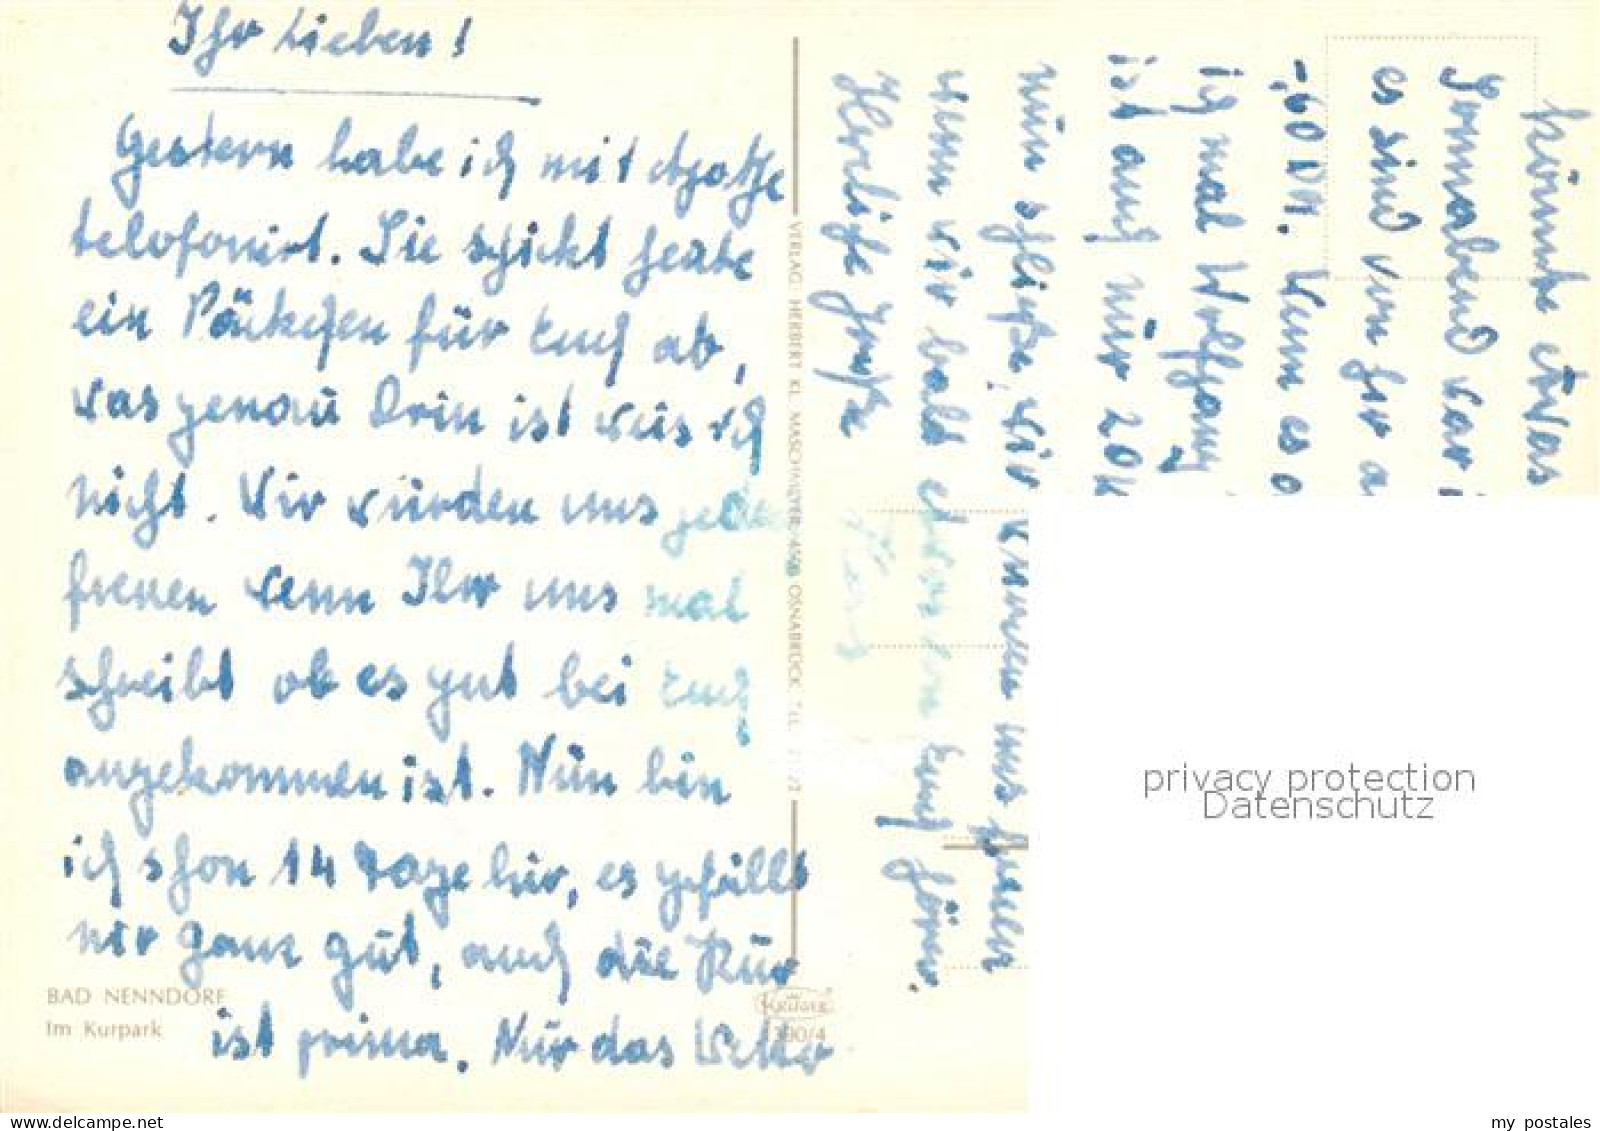 Ihr Lieben!
Gestern habe ich mit
telefonirt. Sie schickt heute
ein Päckchen für Euch ab,
was genau drin ist weis ich
nicht. Wir würden uns jeden
freuen wenn Ihr uns mal
schreibt ob es gut bei Euch
angekommen ist. Nun bin
ich schon 14 Tage hir, es gefällt
mir ganz gut, auch die Kur
ist prima. Nur das Wetter
könnte etwas
Sonnabend war
es sind von hir
-,60 DM. Wenn es
ich mal Wolfgang
ist auch nur 20
nun schließe, wir würden uns freuen
wenn wir bald etwas von Euch hören.
Herzliche Grüße
BAD NENNDORF
Im Kurpark
VERLAG HERBERT KL. MASCHMEYER, 4500 OSNABRÜCK, TEL.
KRÜGER
privacy protection
Datenschutz
my postales